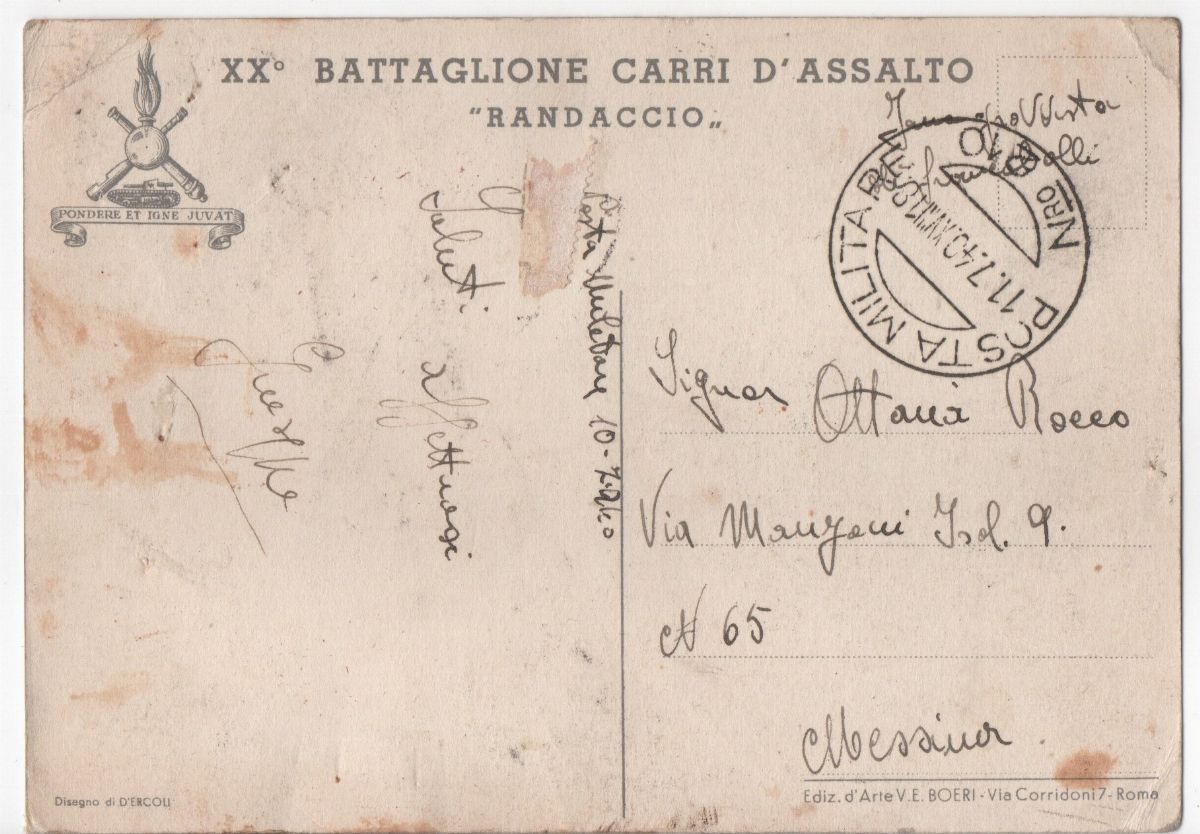 XX° BATTAGLIONE CARRI D'ASSALTO
"RANDACCIO„
PONDERE ET IGNE JUVAT
POSTA MILITARE NRO 10
11.7.40.XVIII 18
Bolli
Posta Militare 10-7-940
Saluti
affettuosi
Giuseppe
Signor Ottanà Rocco
Via Manzoni Isol. 9.
N 65
Messina.
Disegno di D'ERCOLI
Ediz. d'Arte V. E. BOERI - Via Corridoni 7 - Roma